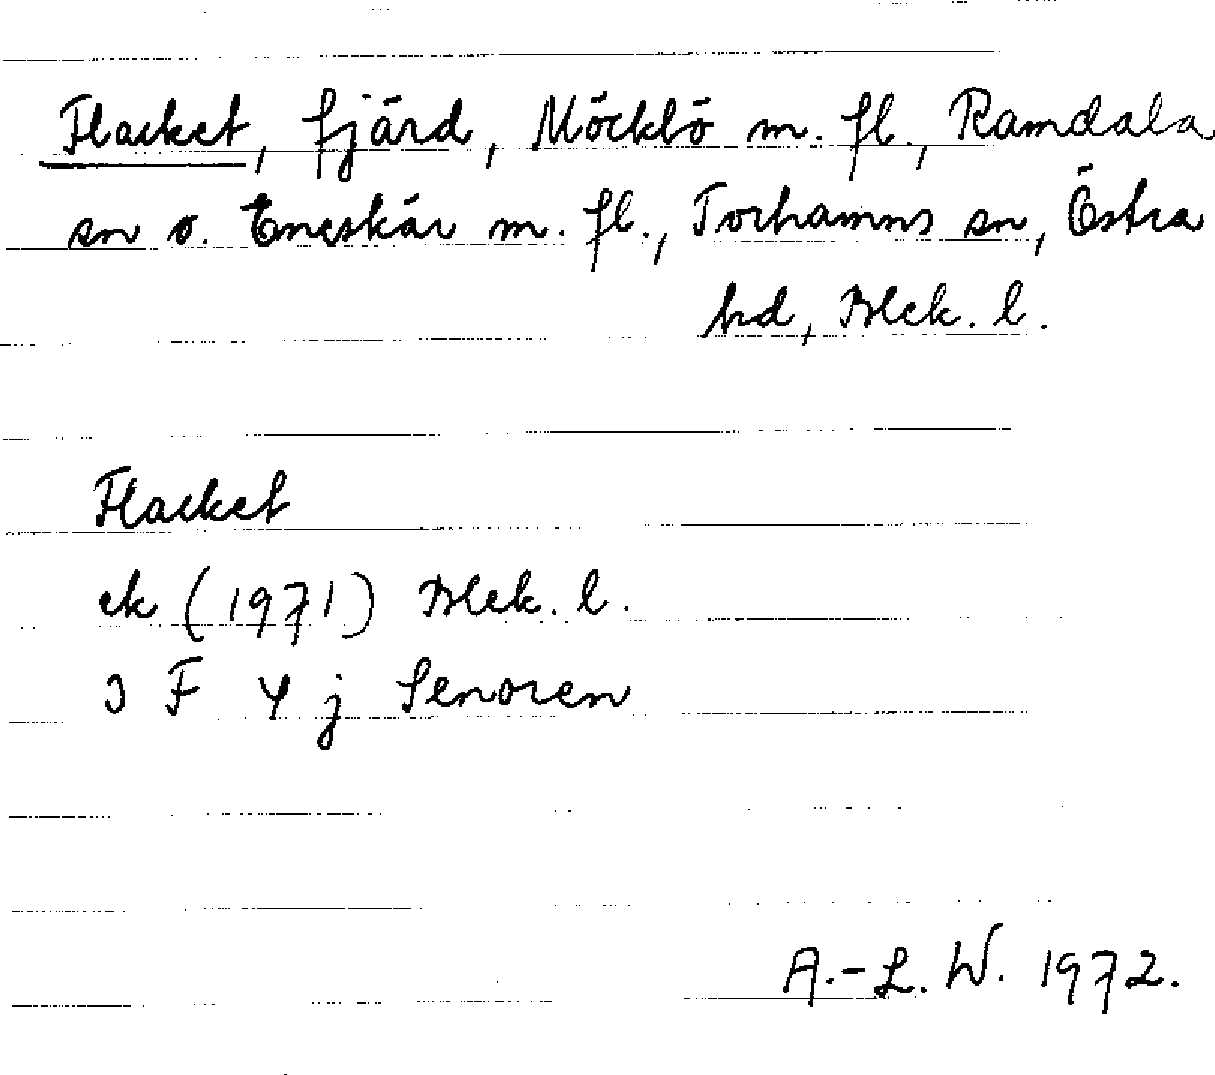 Flacket, fjärd, Möcklö m. fl., Ramdala
sn o. Eneskär m. fl., Torhamns sn, Östra
hd, Blek. l.
Flacket
ek (1971) Blek. l.
3 F 4 j Senoren
A.-L. W. 1972.